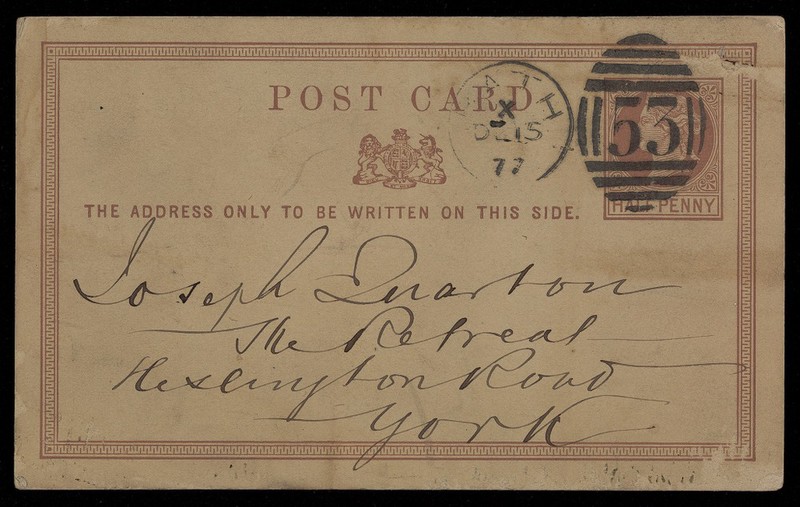 POST CARD
BATH
X
DE 15
77
53
THE ADDRESS ONLY TO BE WRITTEN ON THIS SIDE.
HALF PENNY
Joseph Quarton
The Retreat
Heslington Road
York